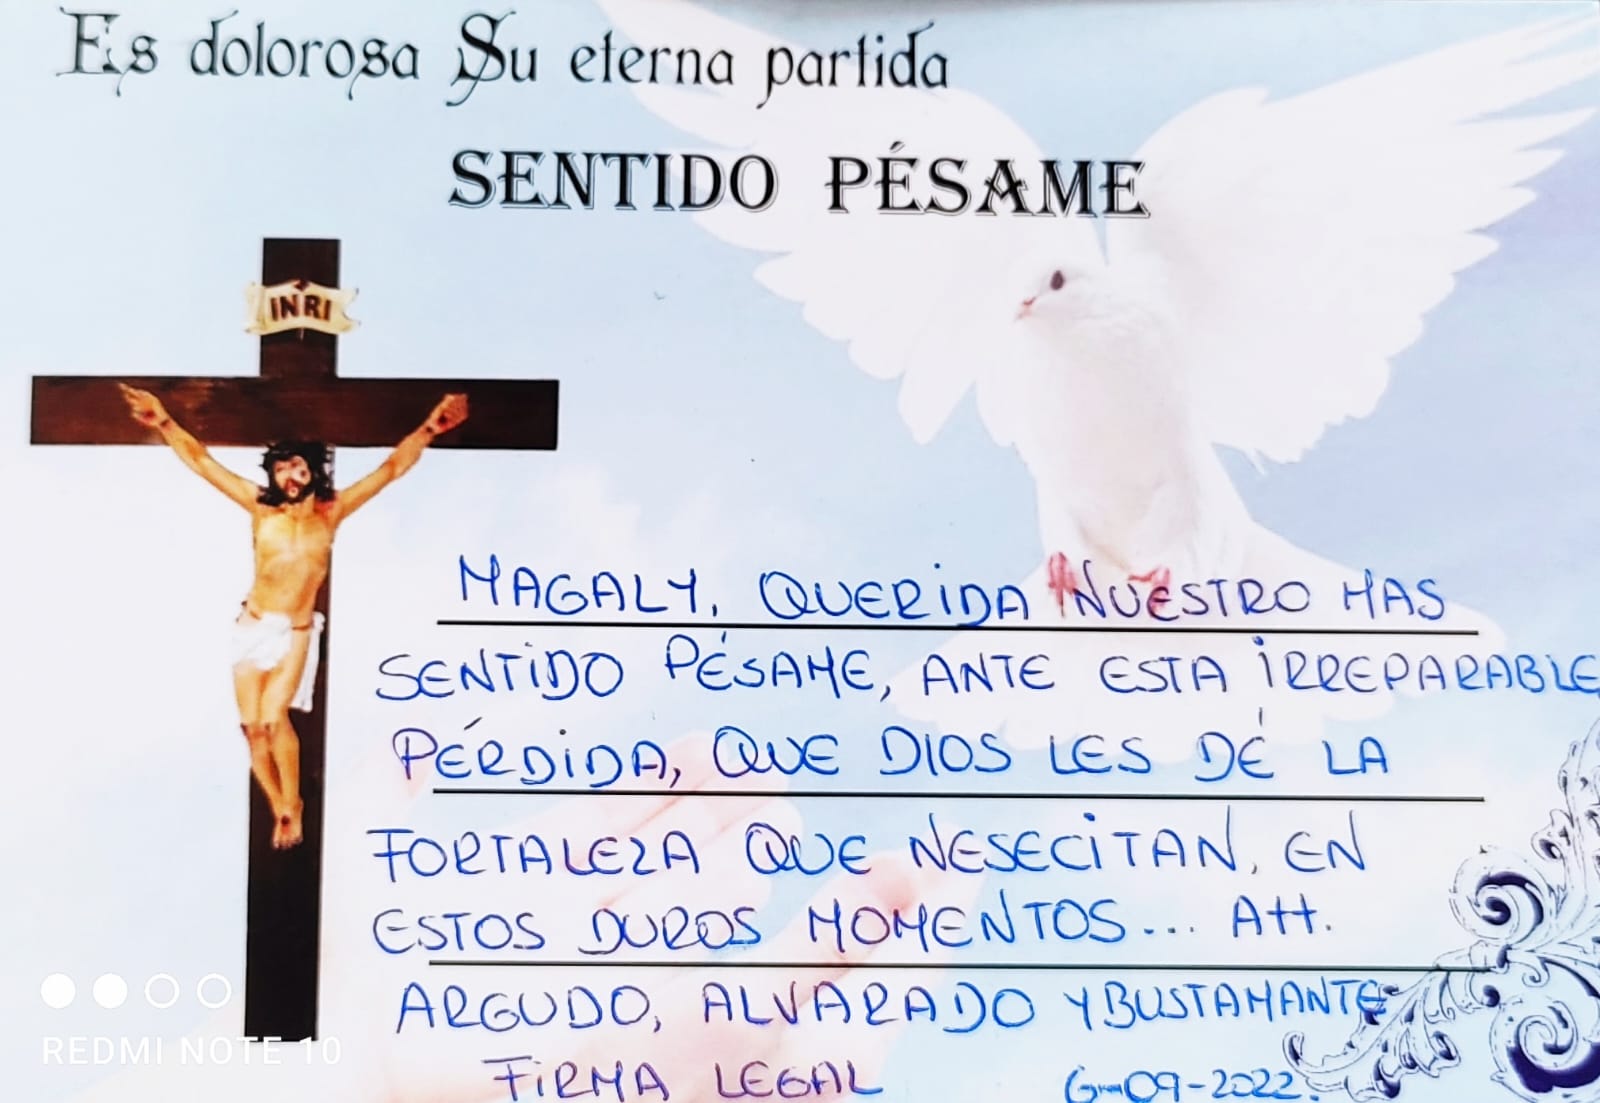 Es dolorosa Su eterna partida
SENTIDO PÉSAME
INRI
MAGALY, QUERIDA NUESTRO MAS
SENTIDO PÉSAME, ANTE ESTA IRREPARABLE
PÉRDIDA, QUE DIOS LES DÉ LA
FORTALEZA QUE NESECITAN, EN
ESTOS DUROS MOMENTOS... Att.
ARGUDO, ALVARADO Y BUSTAMANTE
FIRMA LEGAL 6-09-2022.
REDMI NOTE 10